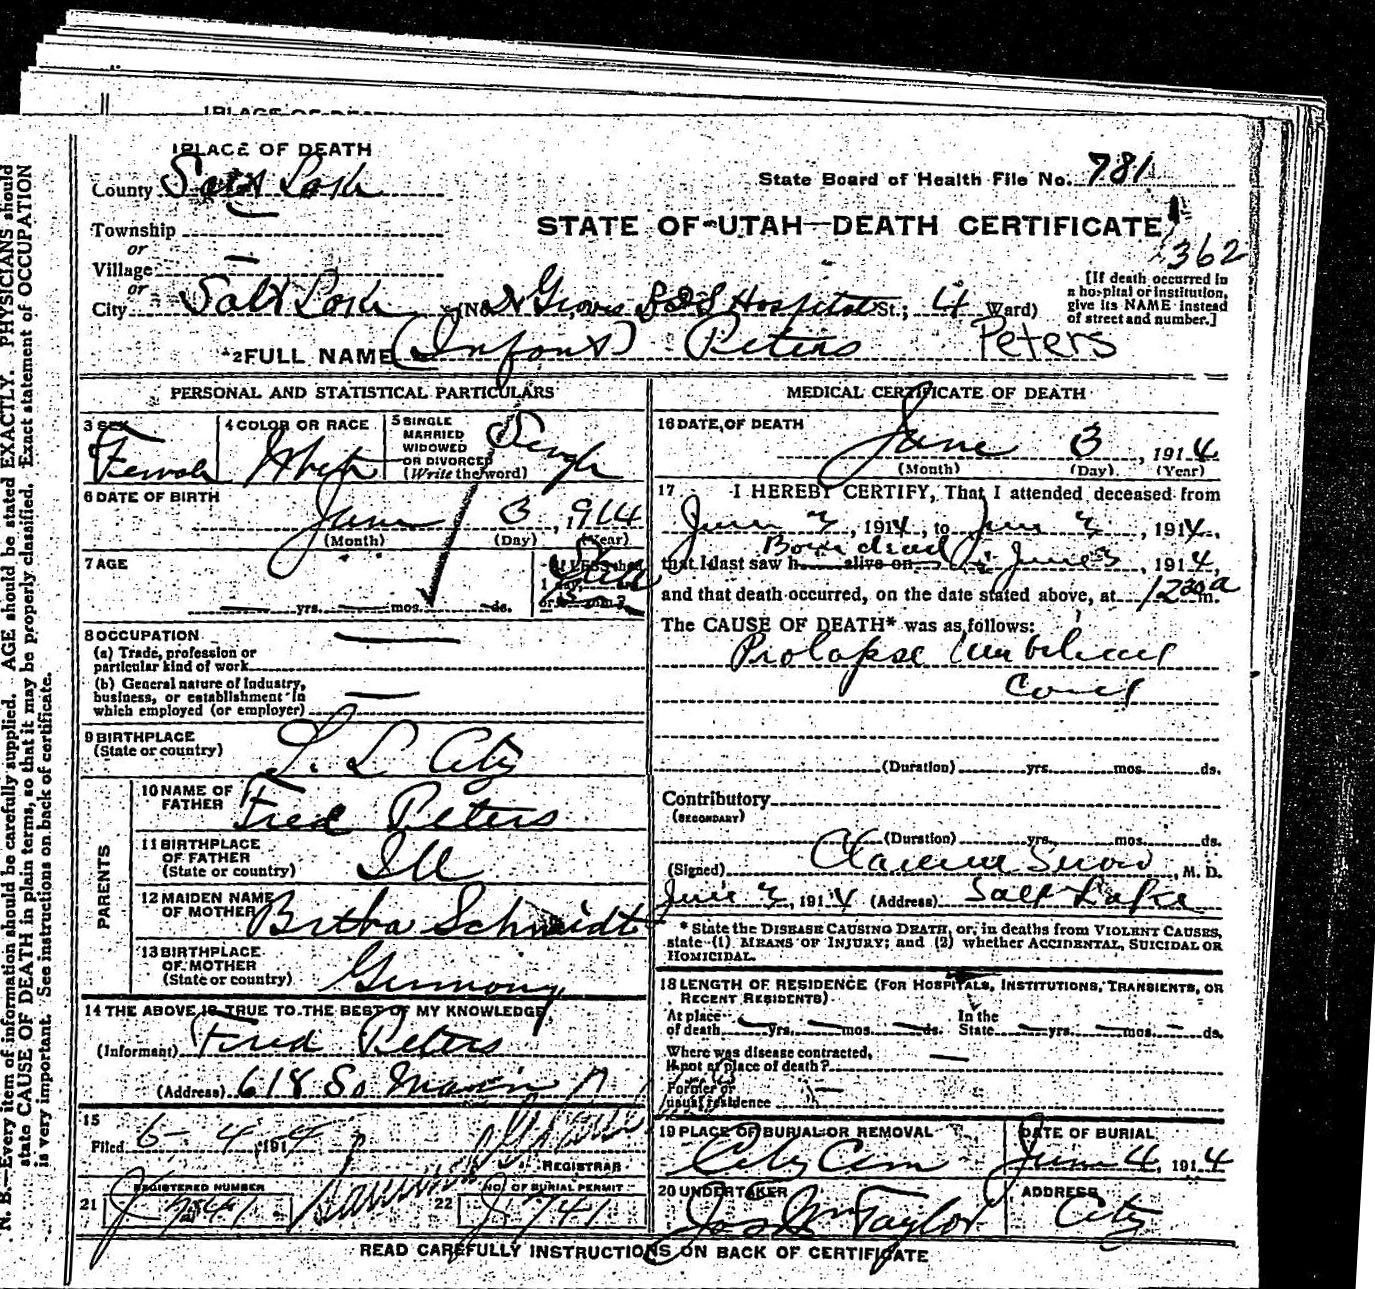 1 PLACE OF DEATH
County Salt Lake
State Board of Health File No. 781
Township
or
STATE OF UTAH—DEATH CERTIFICATE
362
Village
or
City Salt Lake (No. Groves L D S Hospital St.; 4 Ward)
[If death occurred in a hospital or institution, give its NAME instead of street and number.]
2 FULL NAME (Infant) Peters Peters
PERSONAL AND STATISTICAL PARTICULARS
3 SEX Female
4 COLOR OR RACE White
5 SINGLE MARRIED WIDOWED OR DIVORCED (Write the word) Single
6 DATE OF BIRTH
June 3, 1914
(Month) (Day) (Year)
7 AGE
yrs. mos. ds.
If LESS than 1 day, hrs. or min.?
Still
8 OCCUPATION
(a) Trade, profession or particular kind of work
(b) General nature of Industry, business, or establishment in which employed (or employer)
9 BIRTHPLACE (State or country) S. L. City
PARENTS
10 NAME OF FATHER Fred Peters
11 BIRTHPLACE OF FATHER (State or country) Ill
12 MAIDEN NAME OF MOTHER Bertha Schmidt
13 BIRTHPLACE OF MOTHER (State or country) Germany
14 THE ABOVE IS TRUE TO THE BEST OF MY KNOWLEDGE
(Informant) Fred Peters
(Address) 618 So Main
15
Filed 6-4 1914
REGISTRAR
21 REGISTERED NUMBER J 741
22 NO. OF BURIAL PERMIT J 741
MEDICAL CERTIFICATE OF DEATH
16 DATE OF DEATH
June 3, 1914
(Month) (Day) (Year)
17 I HEREBY CERTIFY, That I attended deceased from
June 3, 1914, to June 3, 1914,
Born dead
that I last saw h alive on June 3, 1914,
and that death occurred, on the date stated above, at 12 20 a m.
The CAUSE OF DEATH* was as follows:
Prolapse Umbilical
Cord
(Duration) yrs. mos. ds.
Contributory
(SECONDARY)
(Duration) yrs. mos. ds.
(Signed) Clarence Snow, M. D.
June 3, 1914 (Address) Salt Lake
* State the DISEASE CAUSING DEATH, or, in deaths from VIOLENT CAUSES,
state (1) MEANS OF INJURY; and (2) whether ACCIDENTAL, SUICIDAL OR
HOMICIDAL.
18 LENGTH OF RESIDENCE (FOR HOSPITALS, INSTITUTIONS, TRANSIENTS, OR
RECENT RESIDENTS)
At place of death yrs. mos. ds. In the State yrs. mos. ds.
Where was disease contracted,
if not at place of death?
Former or
usual residence
19 PLACE OF BURIAL OR REMOVAL City Cem
DATE OF BURIAL June 4, 1914
20 UNDERTAKER Jos Wm Taylor
ADDRESS City
READ CAREFULLY INSTRUCTIONS ON BACK OF CERTIFICATE
N. B.—Every item of information should be carefully supplied. AGE should be stated EXACTLY. PHYSICIANS should
state CAUSE OF DEATH in plain terms, so that it may be properly classified. Exact statement of OCCUPATION
is very important. See instructions on back of certificate.